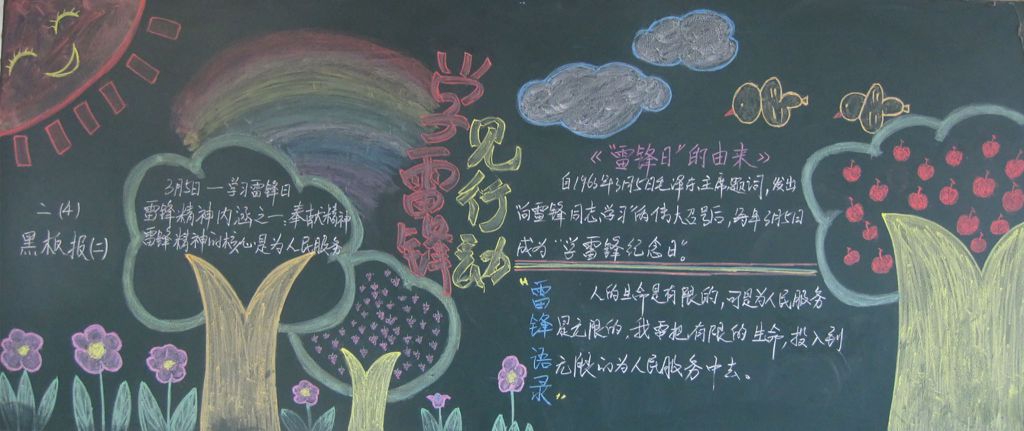 二(4)
黑板报(二)
3月5日一学习雷锋日
雷锋精神内涵之一:奉献精神
雷锋精神的核心是为人民服务
学雷锋
见行动
《“雷锋日”的由来》
自1963年3月5日毛泽东主席题词,发出
向雷锋同志学习”的伟大号召后,每年3月5日
成为“学雷锋纪念日”。
“雷锋语录”
人的生命是有限的,可是为人民服务
是无限的,我要把有限的生命,投入到
无限的为人民服务中去。